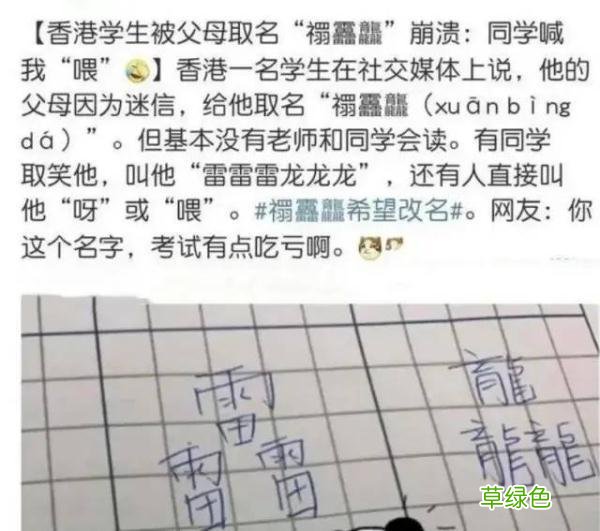 【香港学生被父母取名“禤靐龘”崩溃：同学喊
我“喂”】香港一名学生在社交媒体上说，他的
父母因为迷信，给他取名“禤靐龘（xuānbìng
dá）”。但基本没有老师和同学会读。有同学
取笑他，叫他“雷雷雷龙龙龙”，还有人直接叫
他“呀”或“喂”。#禤靐龘希望改名#。网友：你
这个名字，考试有点吃亏啊。
靐 龘
草绿色